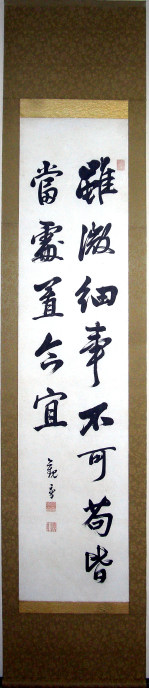 雖微細事不可苟皆
當處置合宜